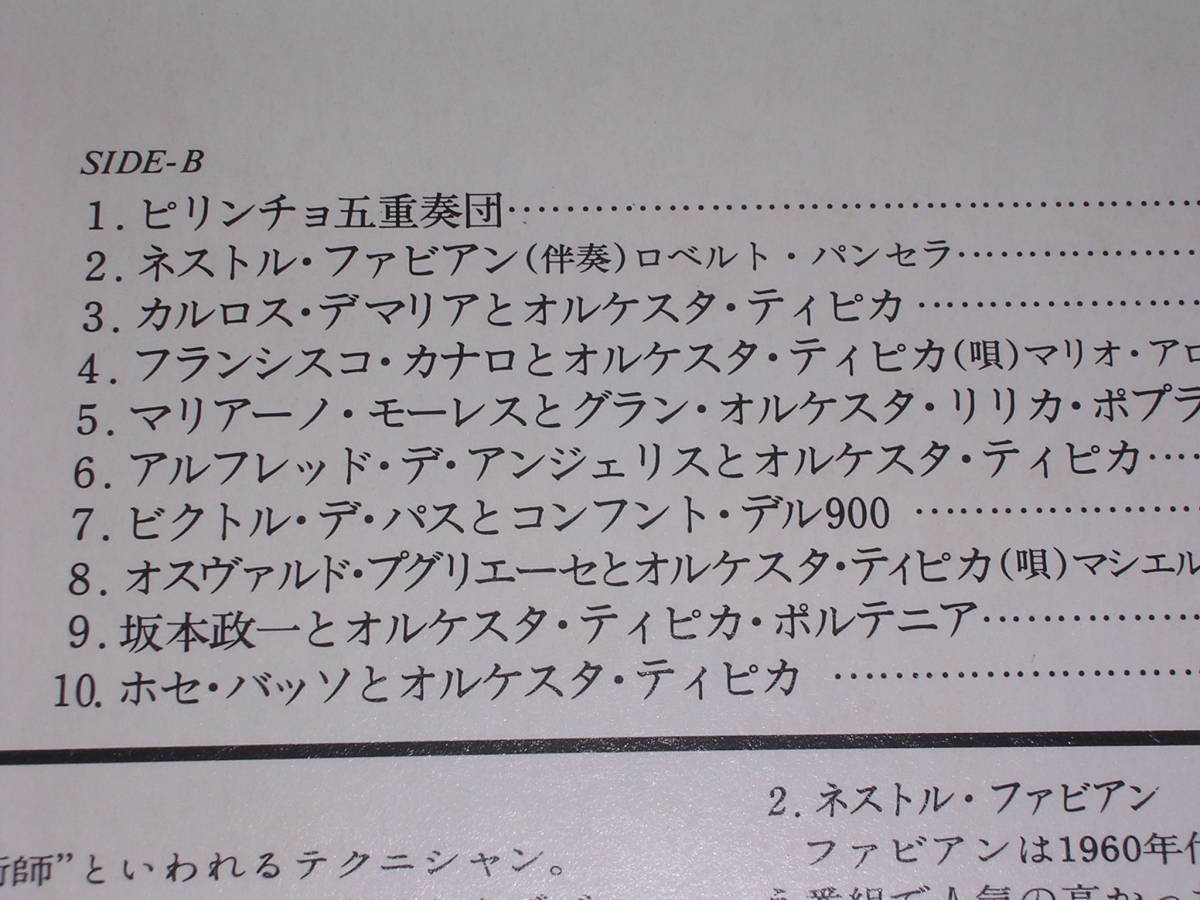 SIDE-B
1. ピリンチョ五重奏団……………………………………
2. ネストル・ファビアン(伴奏)ロベルト・パンセラ………………
3. カルロス・デマリアとオルケスタ・ティピカ…………………
4. フランシスコ・カナロとオルケスタ・ティピカ(唄)マリオ・アロ
5. マリアーノ・モーレスとグラン・オルケスタ・リリカ・ポプラ
6. アルフレッド・デ・アンジェリスとオルケスタ・ティピカ……
7. ビクトル・デ・パスとコンフント・デル900 …………………
8. オスヴァルド・プグリエーセとオルケスタ・ティピカ(唄)マシエル
9. 坂本政一とオルケスタ・ティピカ・ポルテニア……………
10. ホセ・バッソとオルケスタ・ティピカ ………………………
術師”といわれるテクニシャン。
2. ネストル・ファビアン
ファビアンは1960年代
番組で人気の高かっ